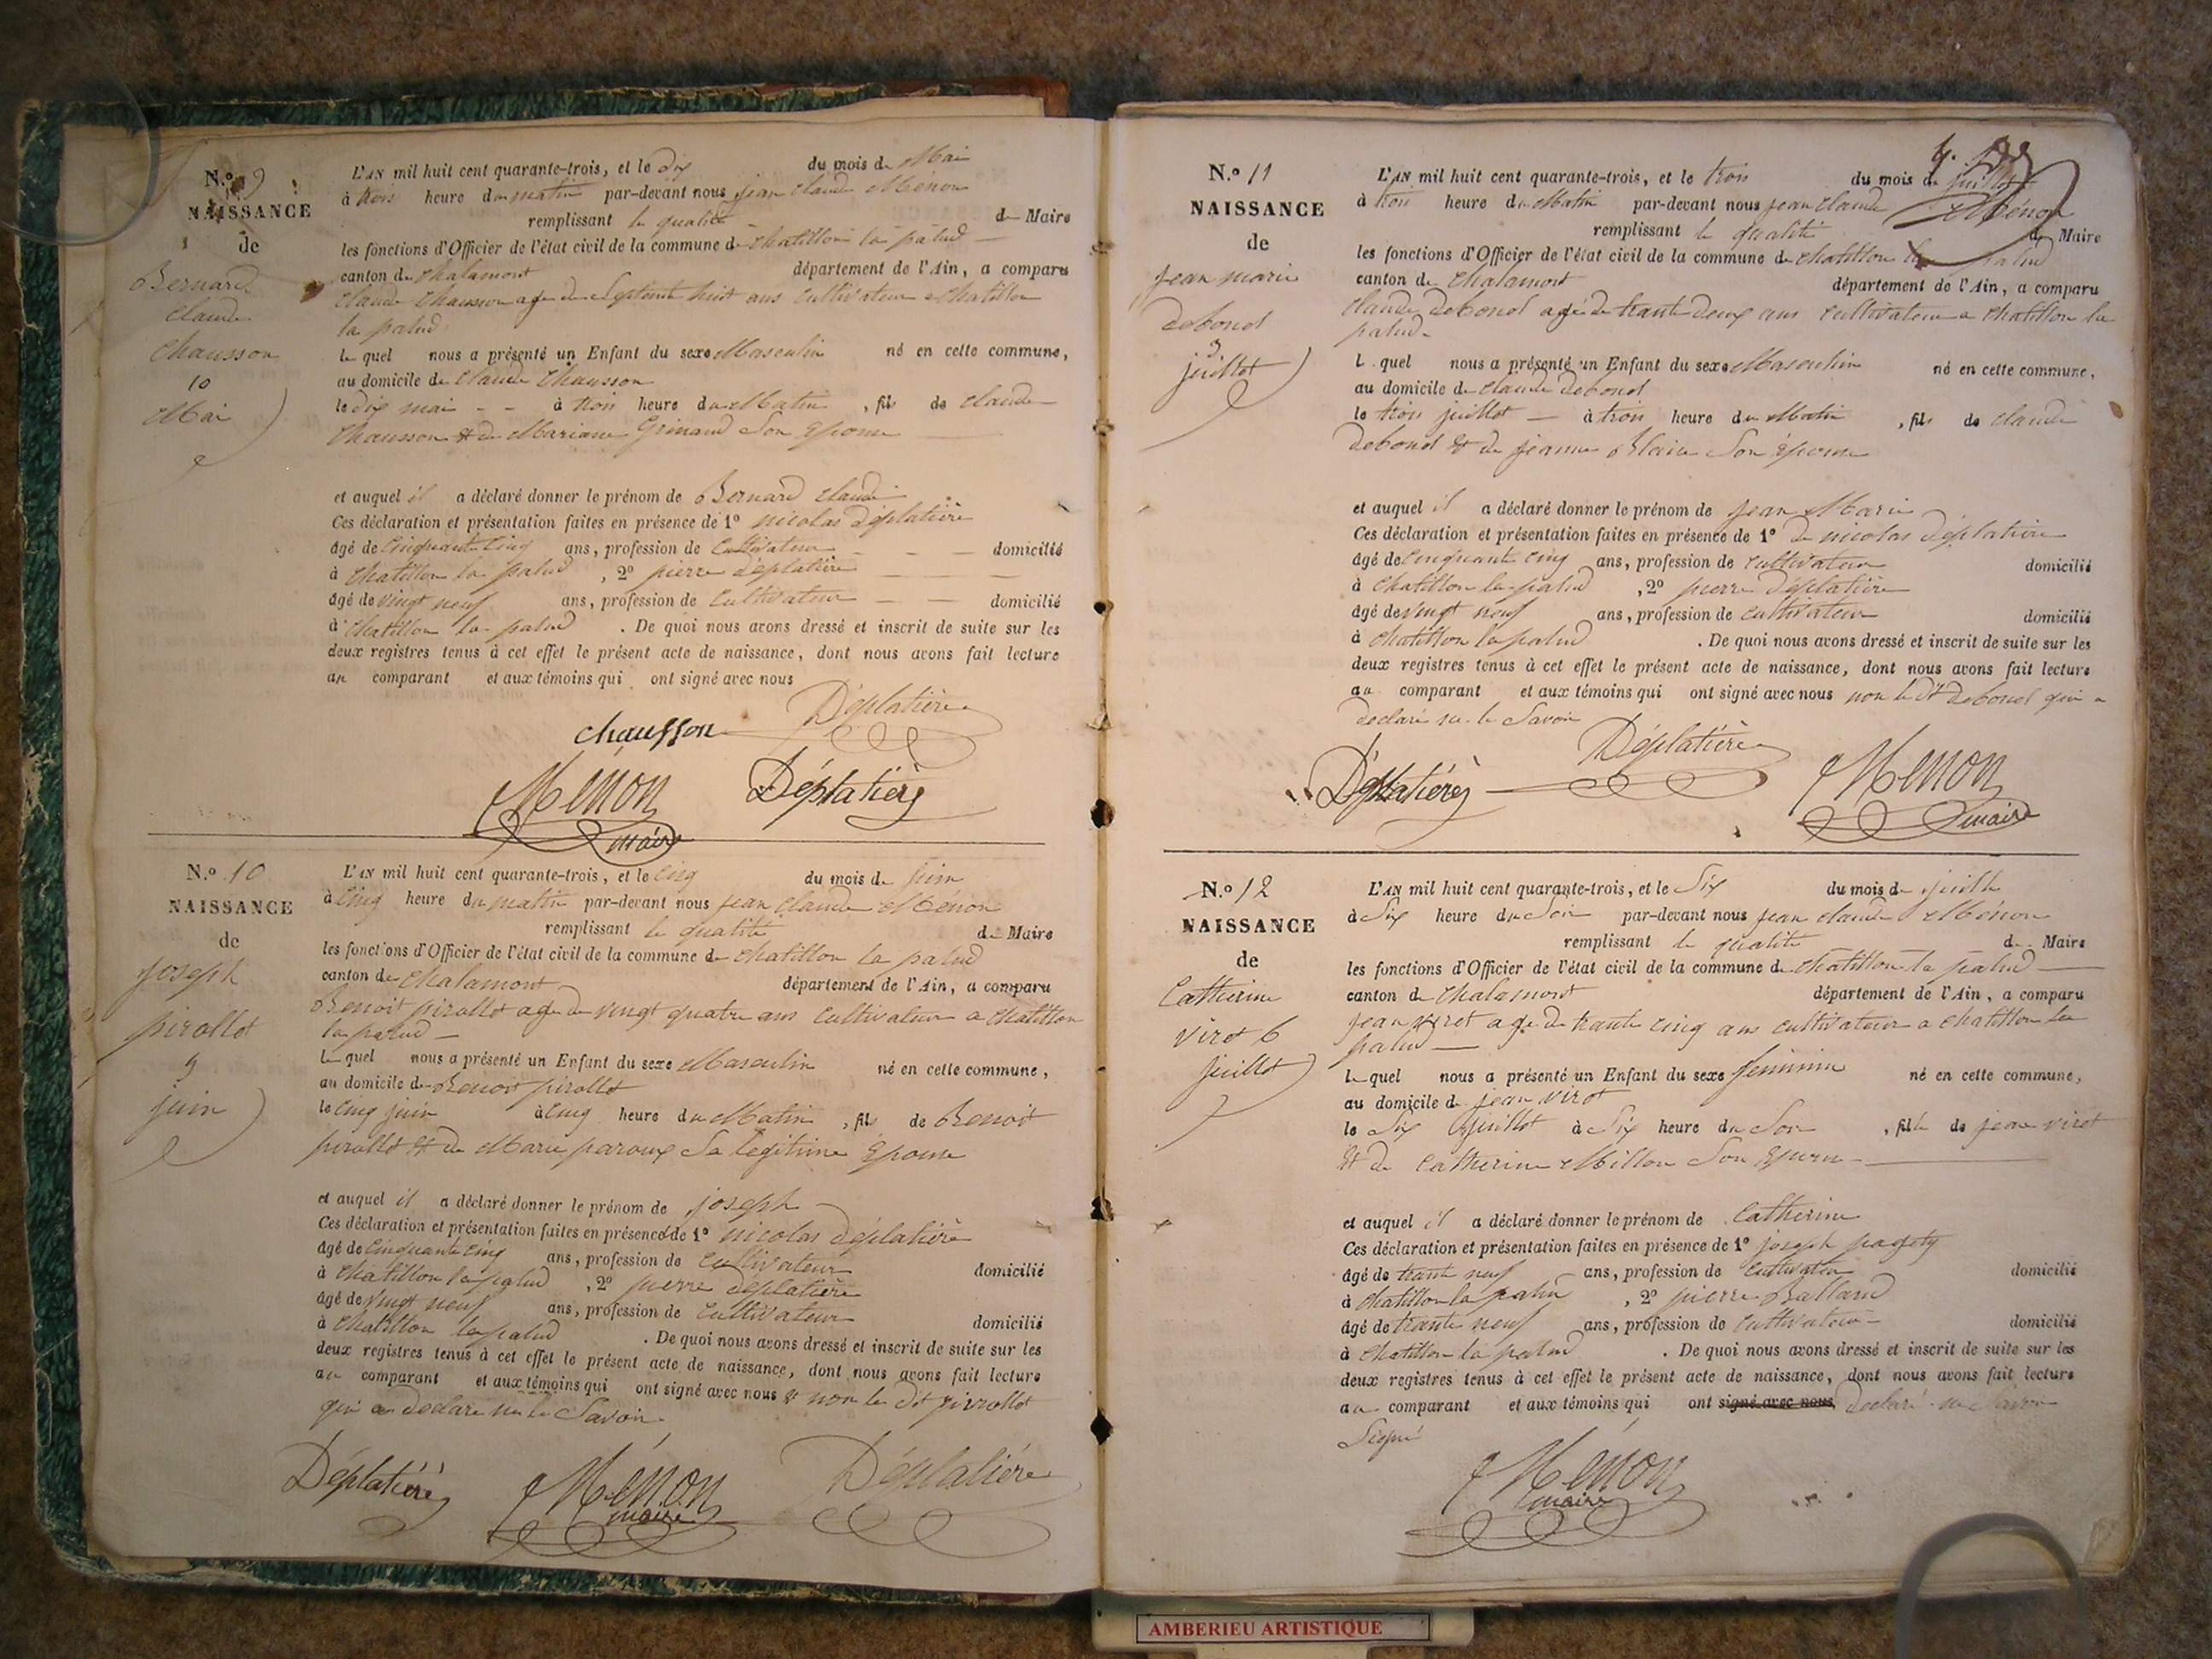 N.º 9
NAISSANCE
de
Bernard
Claude
Chausson
10
Mai
L'AN mil huit cent quarante-trois, et le dix du mois de Mai
à trois heure du matin par-devant nous jean Claude Ménon
remplissant la qualité de Maire
les fonctions d'Officier de l'état civil de la commune de Chatillon la palud
canton de Chalamont département de l'Ain, a comparu
Claude Chausson age de Septente huit ans Cultivateur a Chatillon
la palud
le quel nous a présenté un Enfant du sexe Masculin né en cette commune,
au domicile de Claude Chausson
le dix mai à trois heure du Matin, fils de Claude
Chausson & de Mariane Grinand Son Epouse
et auquel il a déclaré donner le prénom de Bernard Claude
Ces déclaration et présentation faites en présence de 1º nicolas Déplatière
âgé de Cinquante Cinq ans, profession de Cultivateur domicilié
à Chatillon la palud, 2º pierre déplatière
âgé de vingt neuf ans, profession de Cultivateur domicilié
à Chatillon la palud. De quoi nous avons dressé et inscrit de suite sur les
deux registres tenus à cet effet le présent acte de naissance, dont nous avons fait lecture
au comparant et aux témoins qui ont signé avec nous
Déplatière
chausson
Ménon Déplatière
maire
N.º 10
NAISSANCE
de
joseph
pirollet
juin
L'AN mil huit cent quarante-trois, et le Cinq du mois de juin
à Cinq heure du matin par-devant nous jean Claude Ménon
remplissant la qualité de Maire
les fonctions d'Officier de l'état civil de la commune de Chatillon la palud
canton de Chalamont département de l'Ain, a comparu
Benoit pirollet age de vingt quatre ans Cultivateur a Chatillon
la palud
le quel nous a présenté un Enfant du sexe Masculin né en cette commune,
au domicile de Benoit pirollet
le Cinq juin à Cinq heure du Matin, fils de Benoit
pirollet & de Marie paroux Sa legitime Epouse
et auquel il a déclaré donner le prénom de joseph
Ces déclaration et présentation faites en présence de 1º nicolas déplatière
âgé de Cinquante cinq ans, profession de Cultivateur domicilié
à Chatillon la palud, 2º pierre déplatière
âgé de vingt neuf ans, profession de Cultivateur domicilié
à Chatillon la palud. De quoi nous avons dressé et inscrit de suite sur les
deux registres tenus à cet effet le présent acte de naissance, dont nous avons fait lecture
au comparant et aux témoins qui ont signé avec nous & non le dt pirollet
qui a declaré ne le Savoir
Déplatière Ménon Déplatière
maire
N.º 11
NAISSANCE
de
jean marie
debond
3
juillet
L'AN mil huit cent quarante-trois, et le trois du mois de juillet
à trois heure du Matin par-devant nous jean Claude Ménon
remplissant la qualité de Maire
les fonctions d'Officier de l'état civil de la commune de Chatillon la palud
canton de Chalamont département de l'Ain, a comparu
Claude debond agé de trante deux ans Cultivateur a Chatillon la
palud
le quel nous a présenté un Enfant du sexe Masculin né en cette commune,
au domicile de Claude debond
le trois juillet à trois heure du Matin, fils de Claude
debond & de jeanne Blaise Son Epouse
et auquel il a déclaré donner le prénom de jean Marie
Ces déclaration et présentation faites en présence de 1º de nicolas Déplatière
âgé de Cinquante cinq ans, profession de Cultivateur domicilié
à Chatillon la palud, 2º pierre déplatière
âgé de vingt neuf ans, profession de Cultivateur domicilié
à Chatillon la palud. De quoi nous avons dressé et inscrit de suite sur les
deux registres tenus à cet effet le présent acte de naissance, dont nous avons fait lecture
au comparant et aux témoins qui ont signé avec nous non le dt debond qui a
declaré ne le Savoir
Déplatière Déplatière Ménon
maire
N.º 12
NAISSANCE
de
Catherine
viret 6
juillet
L'AN mil huit cent quarante-trois, et le Six du mois de
à Six heure du Soir par-devant nous jean Claude Ménon
remplissant la qualité de Maire
les fonctions d'Officier de l'état civil de la commune de Chatillon la palud
canton de Chalamont département de l'Ain, a comparu
jean viret age de trante cinq ans cultivateur a Chatillon la
palud
le quel nous a présenté un Enfant du sexe feminin né en cette commune,
au domicile de jean viret
le Six juillet à Six heure du Soir, fille de jean viret
& de Catherine Millon Son Epouse
et auquel il a déclaré donner le prénom de Catherine
Ces déclaration et présentation faites en présence de 1º joseph
âgé de trante neuf ans, profession de Cultivateur domicilié
à Chatillon la palud, 2º pierre Balland
âgé de trante neuf ans, profession de Cultivateur domicilié
à Chatillon la palud. De quoi nous avons dressé et inscrit de suite sur les
deux registres tenus à cet effet le présent acte de naissance, dont nous avons fait lecture
au comparant et aux témoins qui ont signé avec nous declaré ne Savoir
Signé
Ménon
maire
AMBERIEU ARTISTIQUE